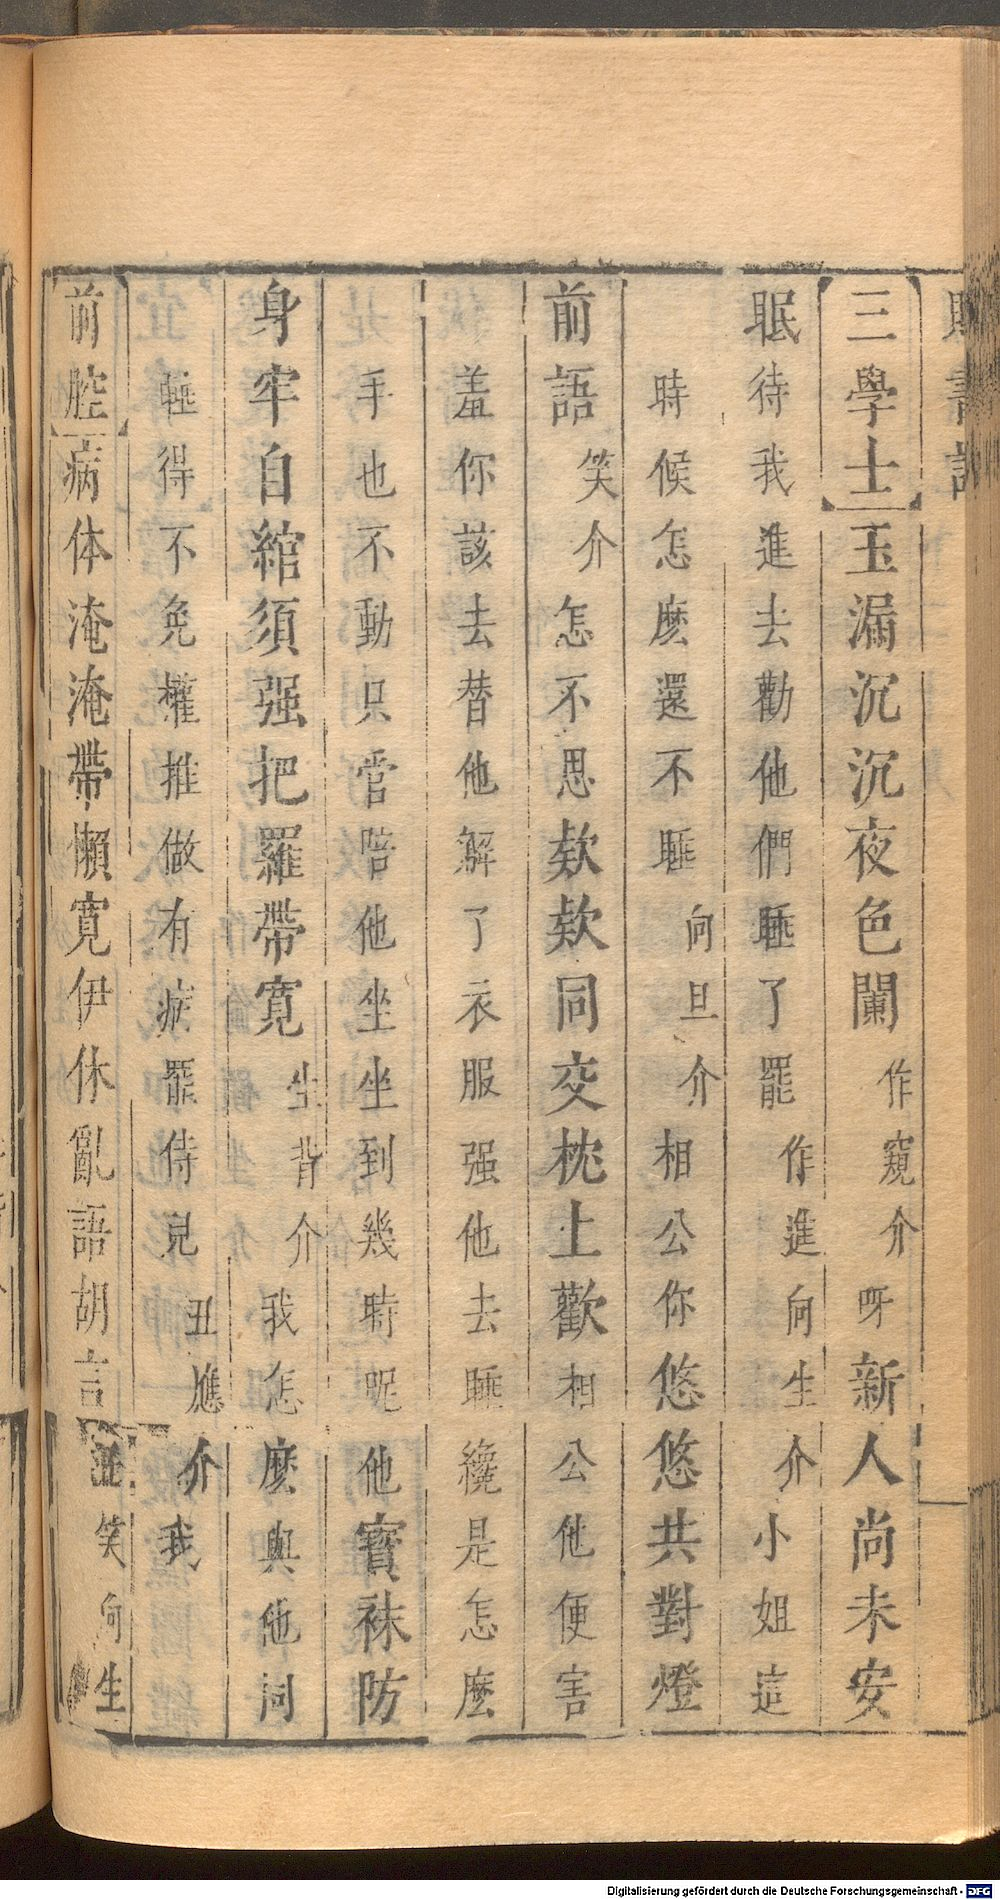 三學士玉漏沉沉夜色闌作窺介呀新人尚未安
眠待我進去勸他們睡了罷作進向生介小姐這
時候怎麽還不睡向旦介相公你悠悠共對燈
前語笑介怎不思欵欵同交枕上歡相公他便害
羞你該去替他解了衣服强他去睡纔是怎麽
手也不動只管陪他坐坐到幾時呢他寳袜防
身牢自綰須强把羅帶寛生背介我怎麽與他同
睡得不免權推做有病罷侍兒丑應介我
前腔病体淹淹帶懶寛伊休亂語胡言丑笑向生
Digitalisierung gefördert durch die Deutsche Forschungsgemeinschaft - DFG